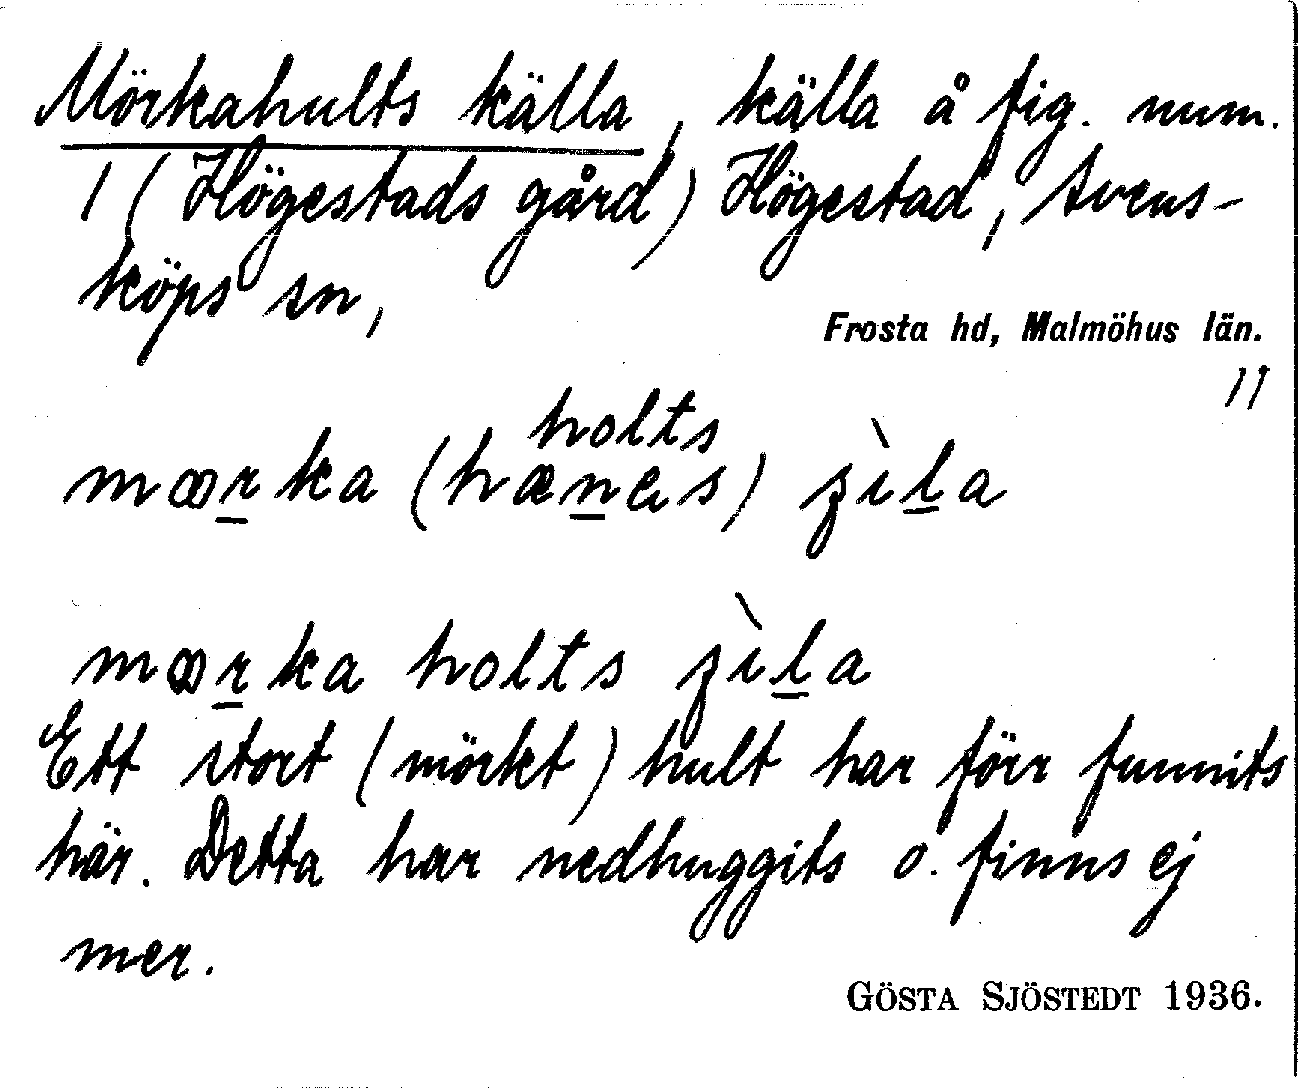 Mörkahults källa, källa å fig. num.
1 (Högestads gård) Högestad, Svens-
köps sn,
Frosta hd, Malmöhus län.
11
holts
mœrka (hænes) ʒìla
mœrka holts ʒìla
Ett stort (mörkt) hult har förr funnits
här. Detta har nedhuggits o. finns ej
mer.
GÖSTA SJÖSTEDT 1936.